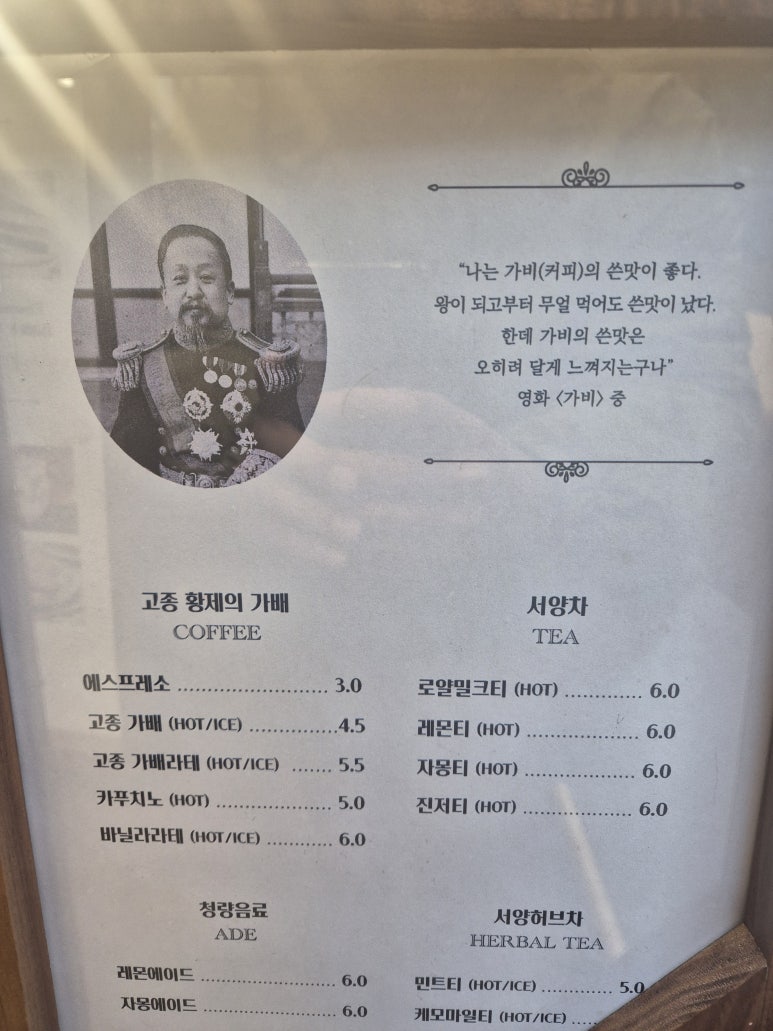 “나는 가비(커피)의 쓴맛이 좋다.
왕이 되고부터 무얼 먹어도 쓴맛이 났다.
한데 가비의 쓴맛은
오히려 달게 느껴지는구나”
영화 <가비> 중
고종 황제의 가배
COFFEE
에스프레소 ........................... 3.0
고종 가배 (HOT/ICE) ................4.5
고종 가배라테 (HOT/ICE) ....... 5.5
카푸치노 (HOT) ...................... 5.0
바닐라라테 (HOT/ICE) ............ 6.0
서양차
TEA
로얄밀크티 (HOT) ............ 6.0
레몬티 (HOT) .................. 6.0
자몽티 (HOT) ................. 6.0
진저티 (HOT) ................. 6.0
청량음료
ADE
레몬에이드 ..................... 6.0
자몽에이드 ..................... 6.0
서양허브차
HERBAL TEA
민트티 (HOT/ICE) ........... 5.0
케모마일티 (HOT/ICE) ....